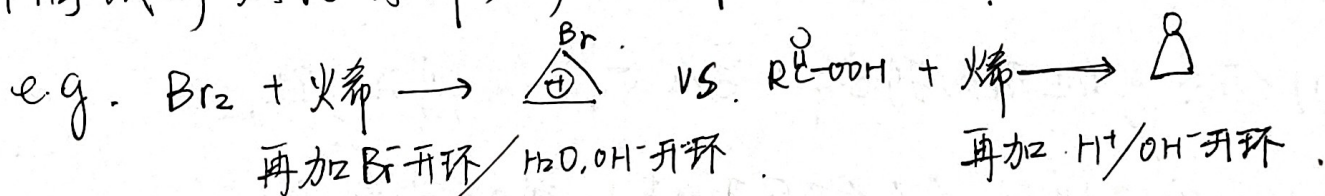 e.g. Br₂ + 烯 → Br ⊕ vs. RC(=O)-OOH + 烯 → O
再加Br⁻开环/H₂O,OH⁻开环. 再加 H⁺/OH⁻开环.